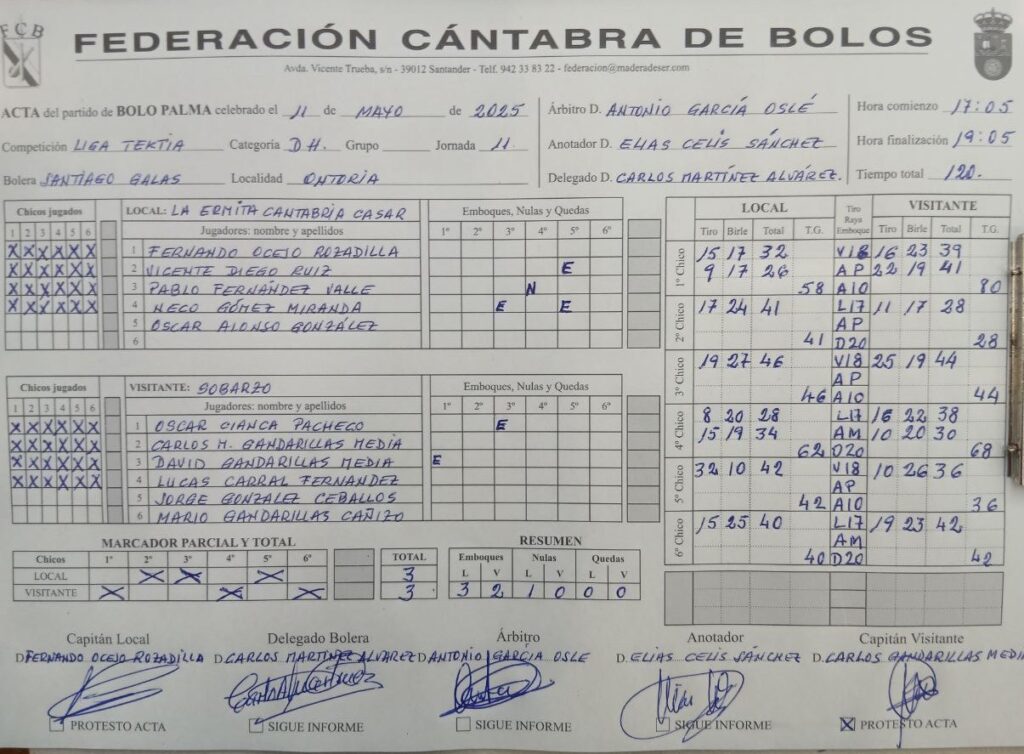 FCB
FEDERACIÓN CÁNTABRA DE BOLOS
Avda. Vicente Trueba, s/n - 39012 Santander - Telf. 942 33 83 22 - federacion@maderadeser.com
ACTA del partido de BOLO PALMA celebrado el 11 de MAYO de 2025
Competición LIGA TEKTIA Categoría D H. Grupo Jornada 11
Bolera SANTIAGO GALAS Localidad ONTORIA
Árbitro D. ANTONIO GARCÍA OSLÉ
Anotador D. ELIAS CELIS SÁNCHEZ
Delegado D. CARLOS MARTÍNEZ ALVÁREZ.
Hora comienzo 17:05
Hora finalización 19:05
Tiempo total 120.
Chicos jugados LOCAL: LA ERMITA CANTABRIA CASAR Emboques, Nulas y Quedas
1 2 3 4 5 6 Jugadores: nombre y apellidos 1º 2º 3º 4º 5º 6º
X X X X X X 1 FERNANDO OCEJO ROZADILLA
X X X X X X 2 VICENTE DIEGO RUIZ E
X X X X X X 3 PABLO FERNÁNDEZ VALLE N
X X X X X X 4 NECO GÓMEZ MIRANDA E E
5 OSCAR ALONSO GONZÁLEZ
6
Chicos jugados VISITANTE: SOBARZO Emboques, Nulas y Quedas
1 2 3 4 5 6 Jugadores: nombre y apellidos 1º 2º 3º 4º 5º 6º
X X X X X X 1 OSCAR CIANCA PACHECO E
X X X X X X 2 CARLOS M. GANDARILLAS MEDIA
X X X X X X 3 DAVID GANDARILLAS MEDIA E
X X X X X X 4 LUCAS CARRAL FERNANDEZ
5 JORGE GONZALEZ CEBALLOS
6 MARIO GANDARILLAS CAÑIZO
MARCADOR PARCIAL Y TOTAL
Chicos 1º 2º 3º 4º 5º 6º TOTAL
LOCAL X X X 3
VISITANTE X X X 3
RESUMEN
Emboques Nulas Quedas
L V L V L V
3 2 1 0 0 0
LOCAL Tiro Raya Emboque VISITANTE
Tiro Birle Total T.G. Tiro Birle Total T.G.
1º Chico 15 17 32 V18 16 23 39
9 17 26 AP 22 19 41
58 A10 80
2º Chico 17 24 41 L17 11 17 28
AP
41 D20 28
3º Chico 19 27 46 V18 25 19 44
AP
46 A10 44
4º Chico 8 20 28 L17 16 22 38
15 19 34 AM 10 20 30
62 D20 68
5º Chico 32 10 42 V18 10 26 36
AP
42 A10 36
6º Chico 15 25 40 L17 19 23 42
AM
40 D20 42
Capitán Local Delegado Bolera Árbitro Anotador Capitán Visitante
D. FERNANDO OCEJO ROZADILLA D. CARLOS MARTÍNEZ ALVAREZ D. ANTONIO GARCÍA OSLE D. ELIAS CELIS SÁNCHEZ D. CARLOS GANDARILLAS MEDIA
PROTESTO ACTA SIGUE INFORME SIGUE INFORME SIGUE INFORME X PROTESTO ACTA